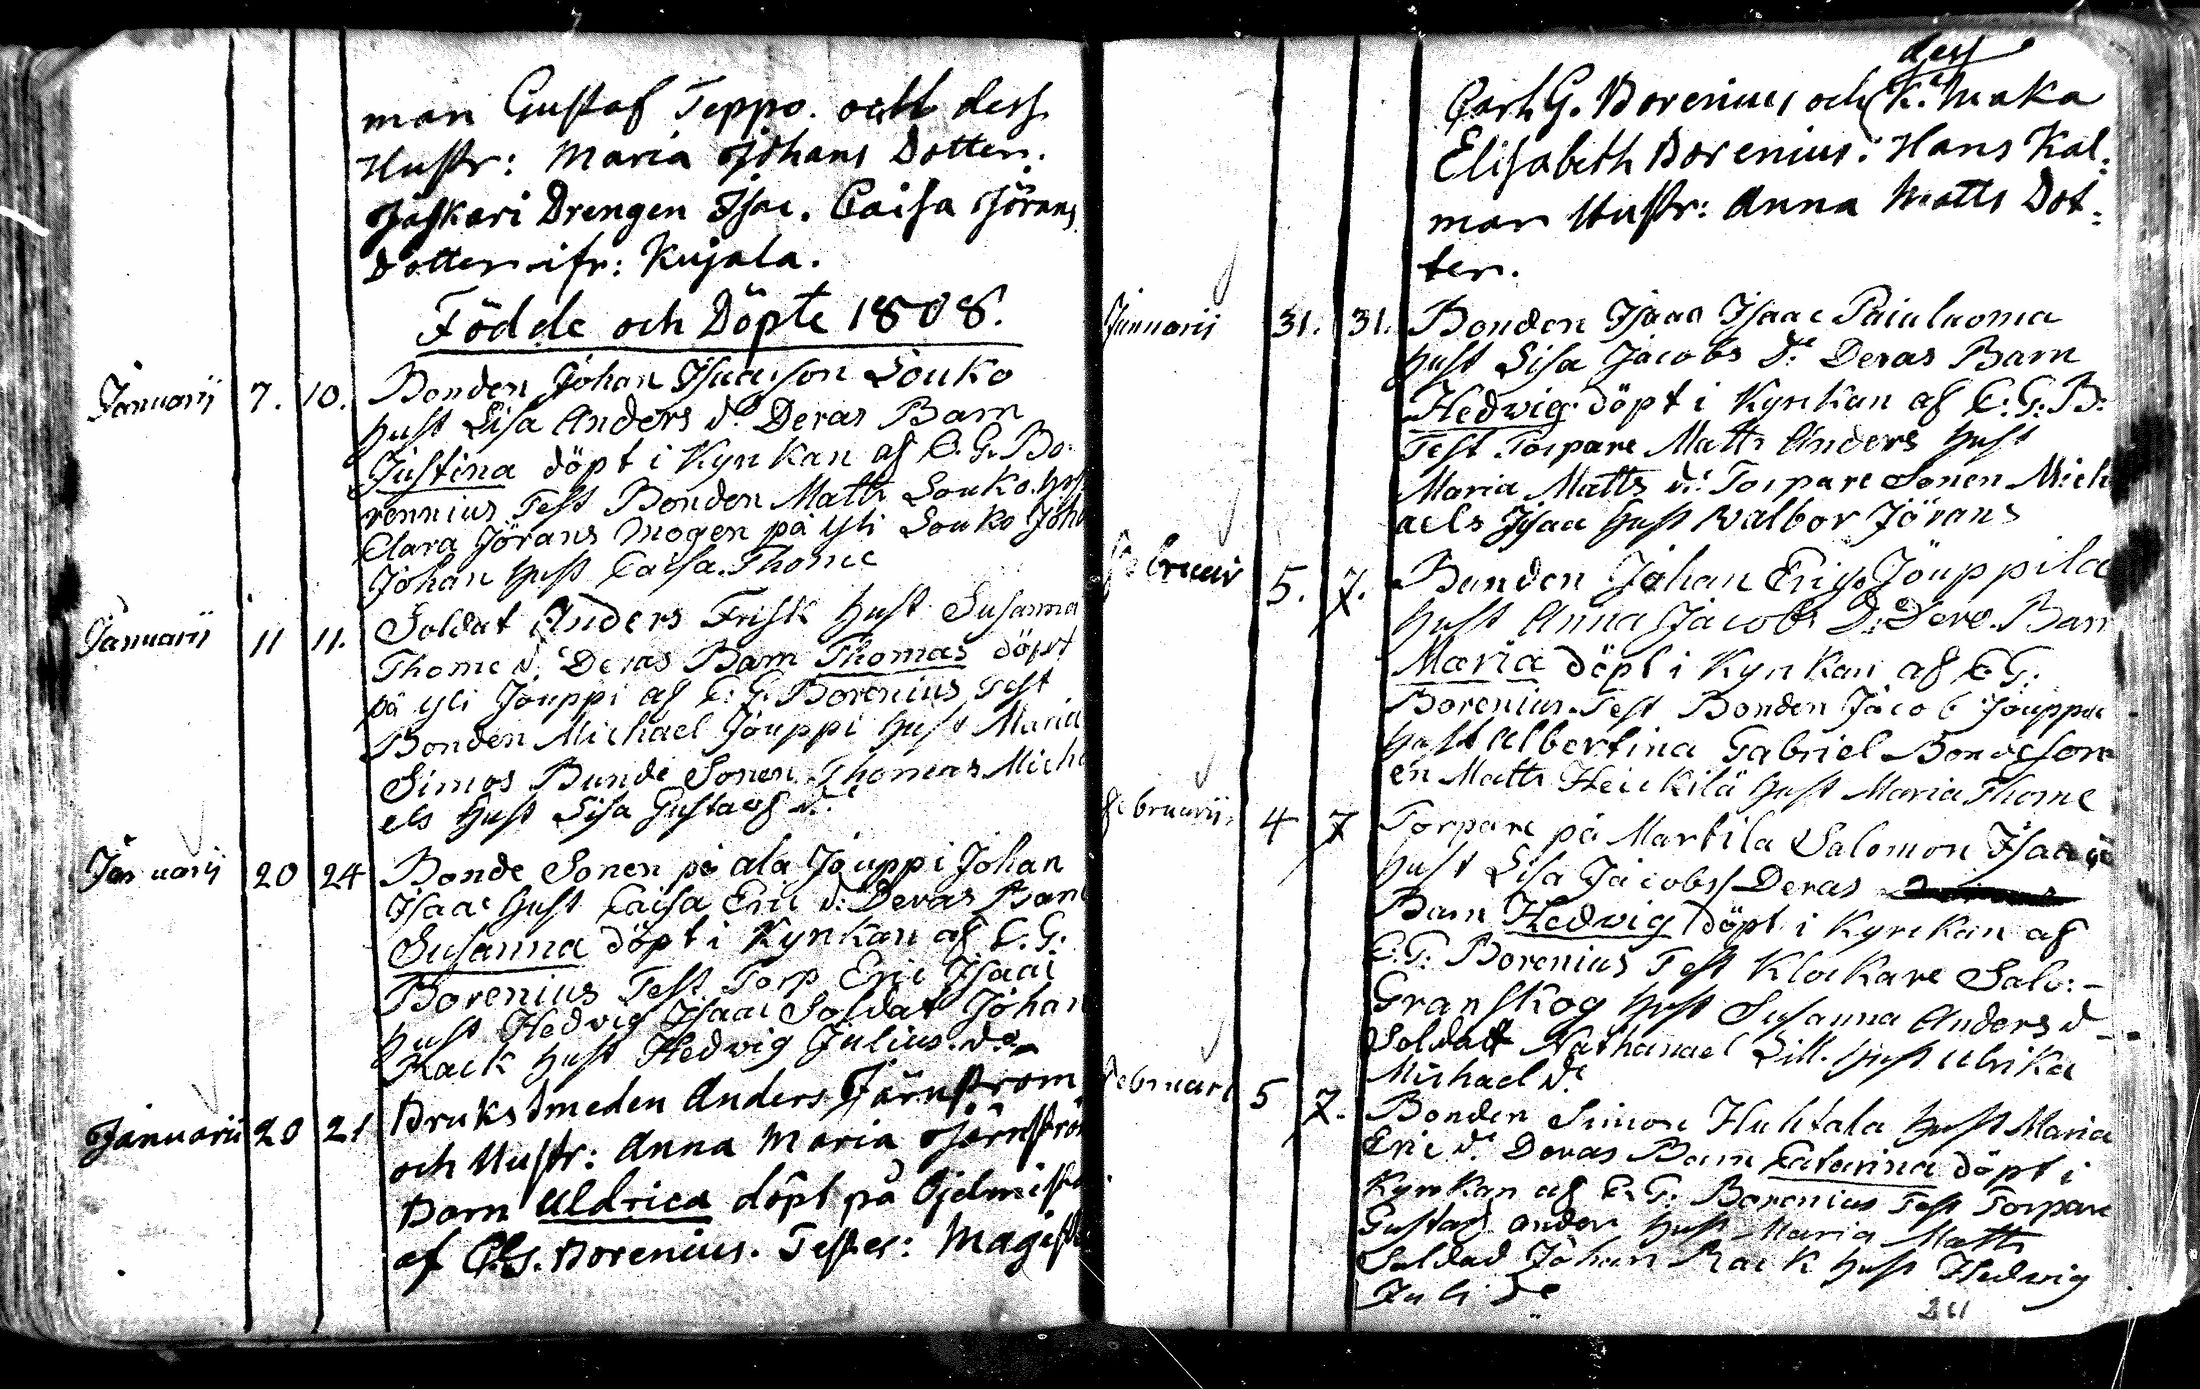 man Gustaf Teppo. och dess
Hustr: Maria Johans Dotter.
Jaskari Drengen Isac. Caisa Jörans
Dotter ifr: Kujala.
Födde och Döpte 1808.
Januarii 7. 10. Bonden Johan Isaacson Louko
hust Lisa Anders dr. Deras Barn
Justina döpt i Kyrkan af C. G. Bo-
rennius Test Bonden Matts Louko. hust
Clara Jörans Mogen på Yli Louko Joha
Johan hust Caisa Thome
Januarii 11 11. Soldat Anders Frisk hust Susanna
Thome d. Deras Barn Thomas döpt
på Yli Jouppi af C. G. Borenius Test
Bonden Michael Jouppi hust Maria
Simos Bunde Sonen Thomas Micha
els hust Lisa Gustaafs d.
Januarii 20 24 Bonde Sonen på ala Jouppi Johan
Isaac hust Caisa Eric d: Deras Barn
Susanna döpt i Kyrkan af C. G:
Borenius Test Torp Eric Isaac
hust Hedvig Isaac Soldat Johan
Rack hust Hedvig Julius. dr
Januarii 20 21 Bruks Smeden Anders Järnström
och Hustr: Anna Maria Järnströ
Barn Uldrica döpt på Öjelmistra
af C. G. Borenius. Testes: Magister
Carl G. Borenius och dess K. Maka
Elisabeth Borenius. Hans Kal:
man Hustr: Anna Matts Dot:
ter.
Januarii 31. 31. Bonden Isaac Isaac Pailuoma
hust Lisa Jacobs dr Deras Barn
Hedvig. döpt i Kyrkan af C: G: B:
Test Torpare Matts Anders hust
Maria Matts dr. Torpare Sonen Mich
aels Isaac hust Walbor Jörans
Februar 5. 7. Bunden Johan Erics Jouppila
hust Anna Jacobs D: Dera. Barn
Maria döpt i Kyrkan af C G:
Borenius. Test Bonden Jacob Jouppi
hust Albertina Gabriel Bondeson
en Matts Heickilä hust Maria Thome
Februarii 4 7 Torpare på Martila Salomon Isaac
hust Lisa Jacobs Deras
Barn Hedwig döpt i Kyrkan af
C. G: Borenius Test Klockare Salo:-
Granskog hust Susanna Anders d
Soldatt Nathanael Lill. hust Ulrika
Michael dr
Februari 5 7. Bonden Simon Huhtala hust Maria
Eric dr. Deras Barn Catarina döpt i
Kyrkan af C. G: Borenius Test Torpare
Gustaf Ander hust Maria Matts
Soldad Johan Rack hust Hedwig
Juli dr